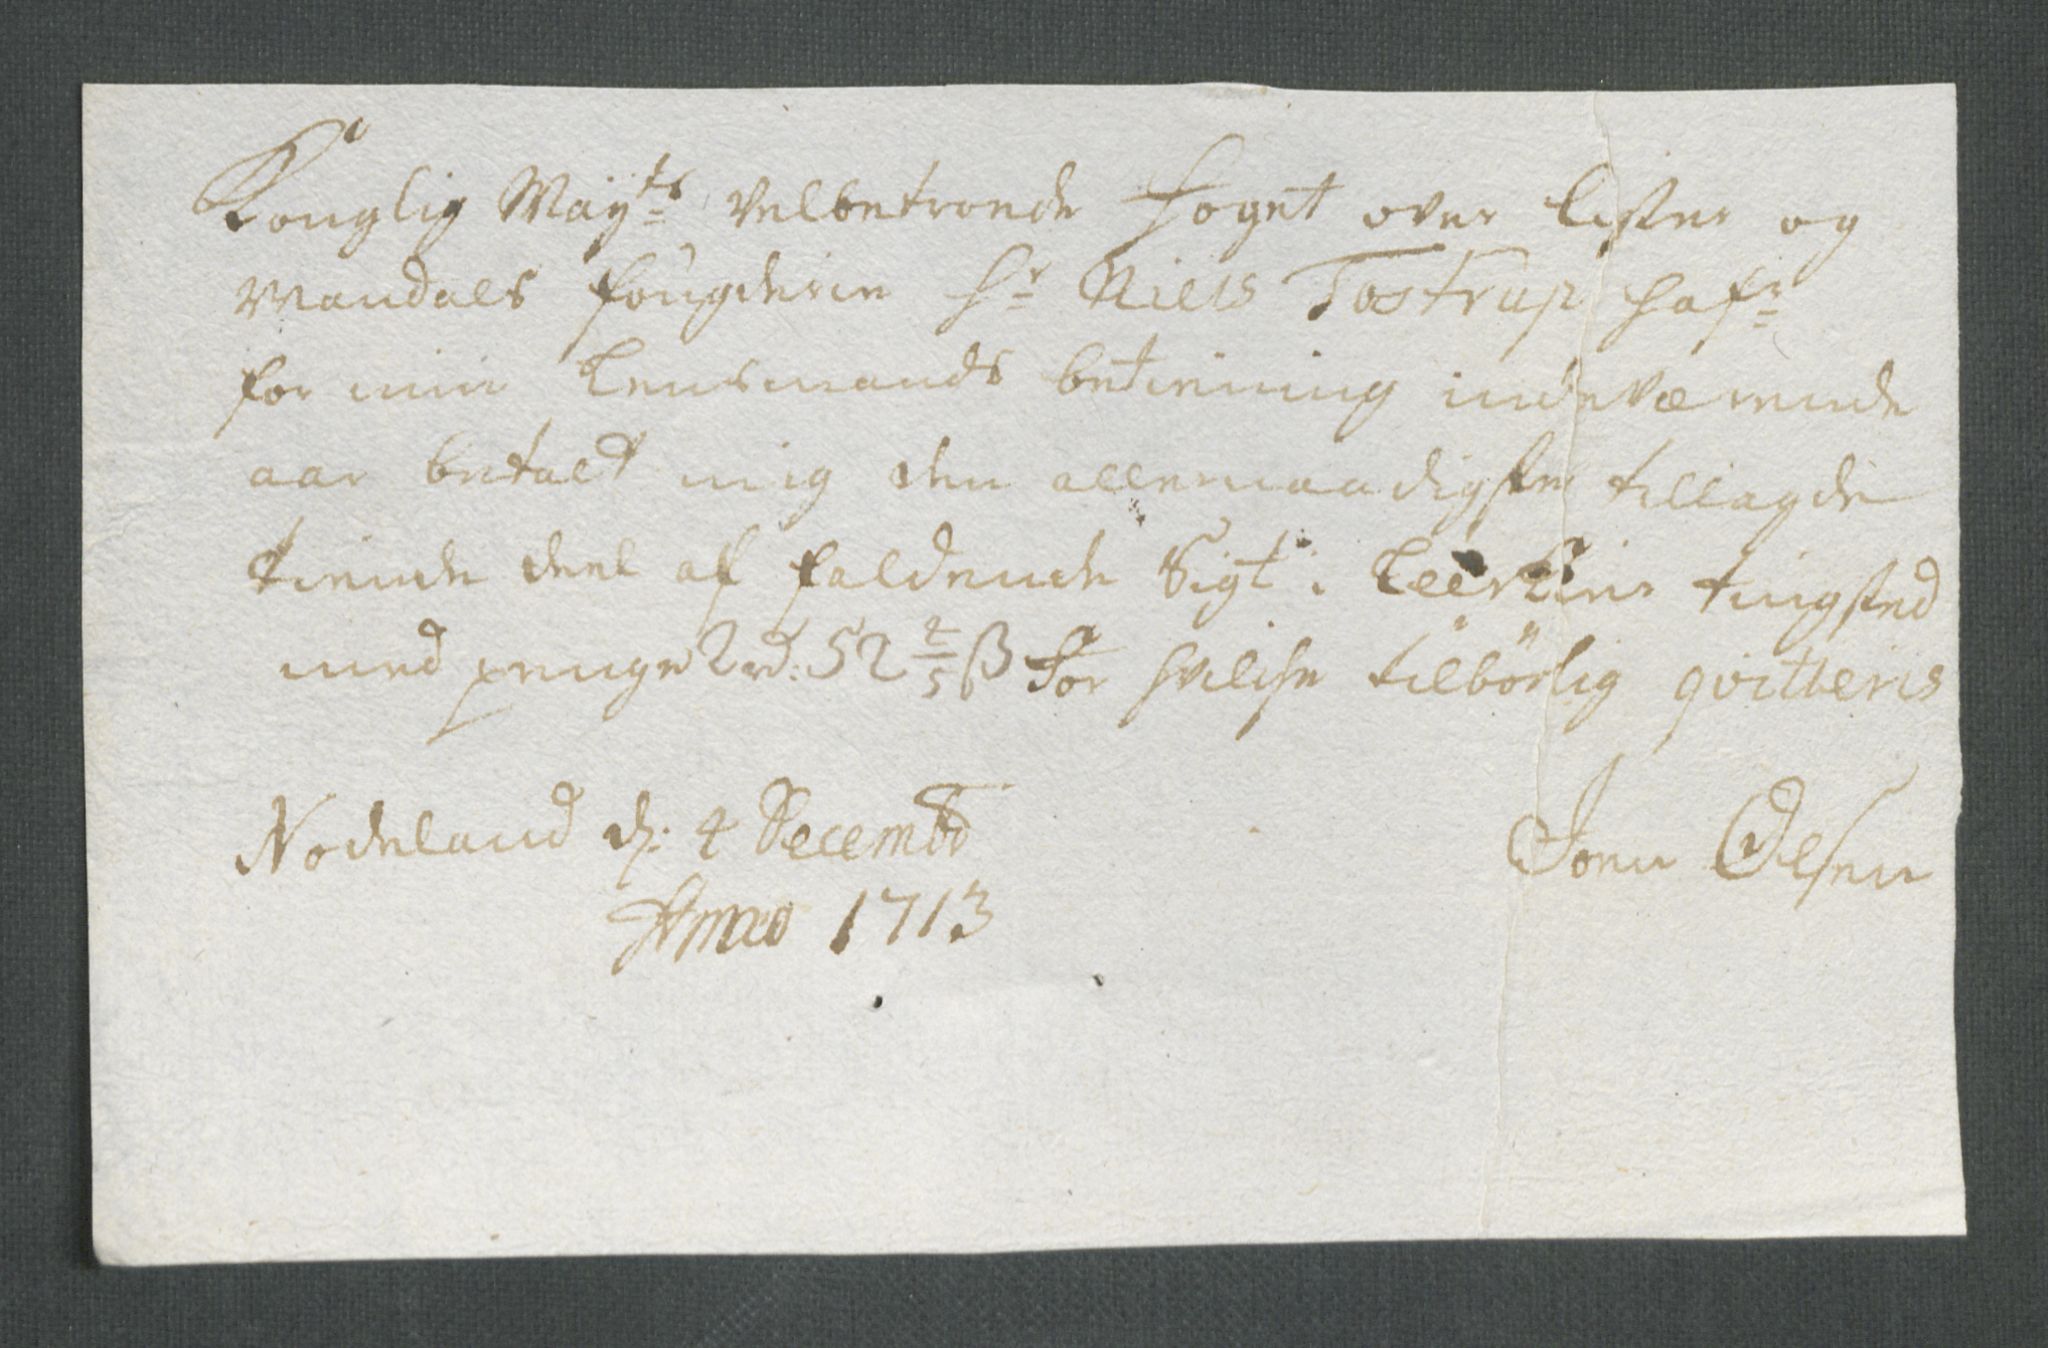 Konglig Mayts velbetroede foget over Lister og
Mandals fougderie Hr Niels Tostrup hafr
for min Lensmands betiening indeværende
aar betalt mig den allernaadigste tillagde
tiende deel af faldende Sigt i tingsted
med penge 2 rd: 52 2/5 ß for hvilche tilbörlig qvitteris
Nodeland d: 4 Decembr
Anno 1713
Joen Olsen